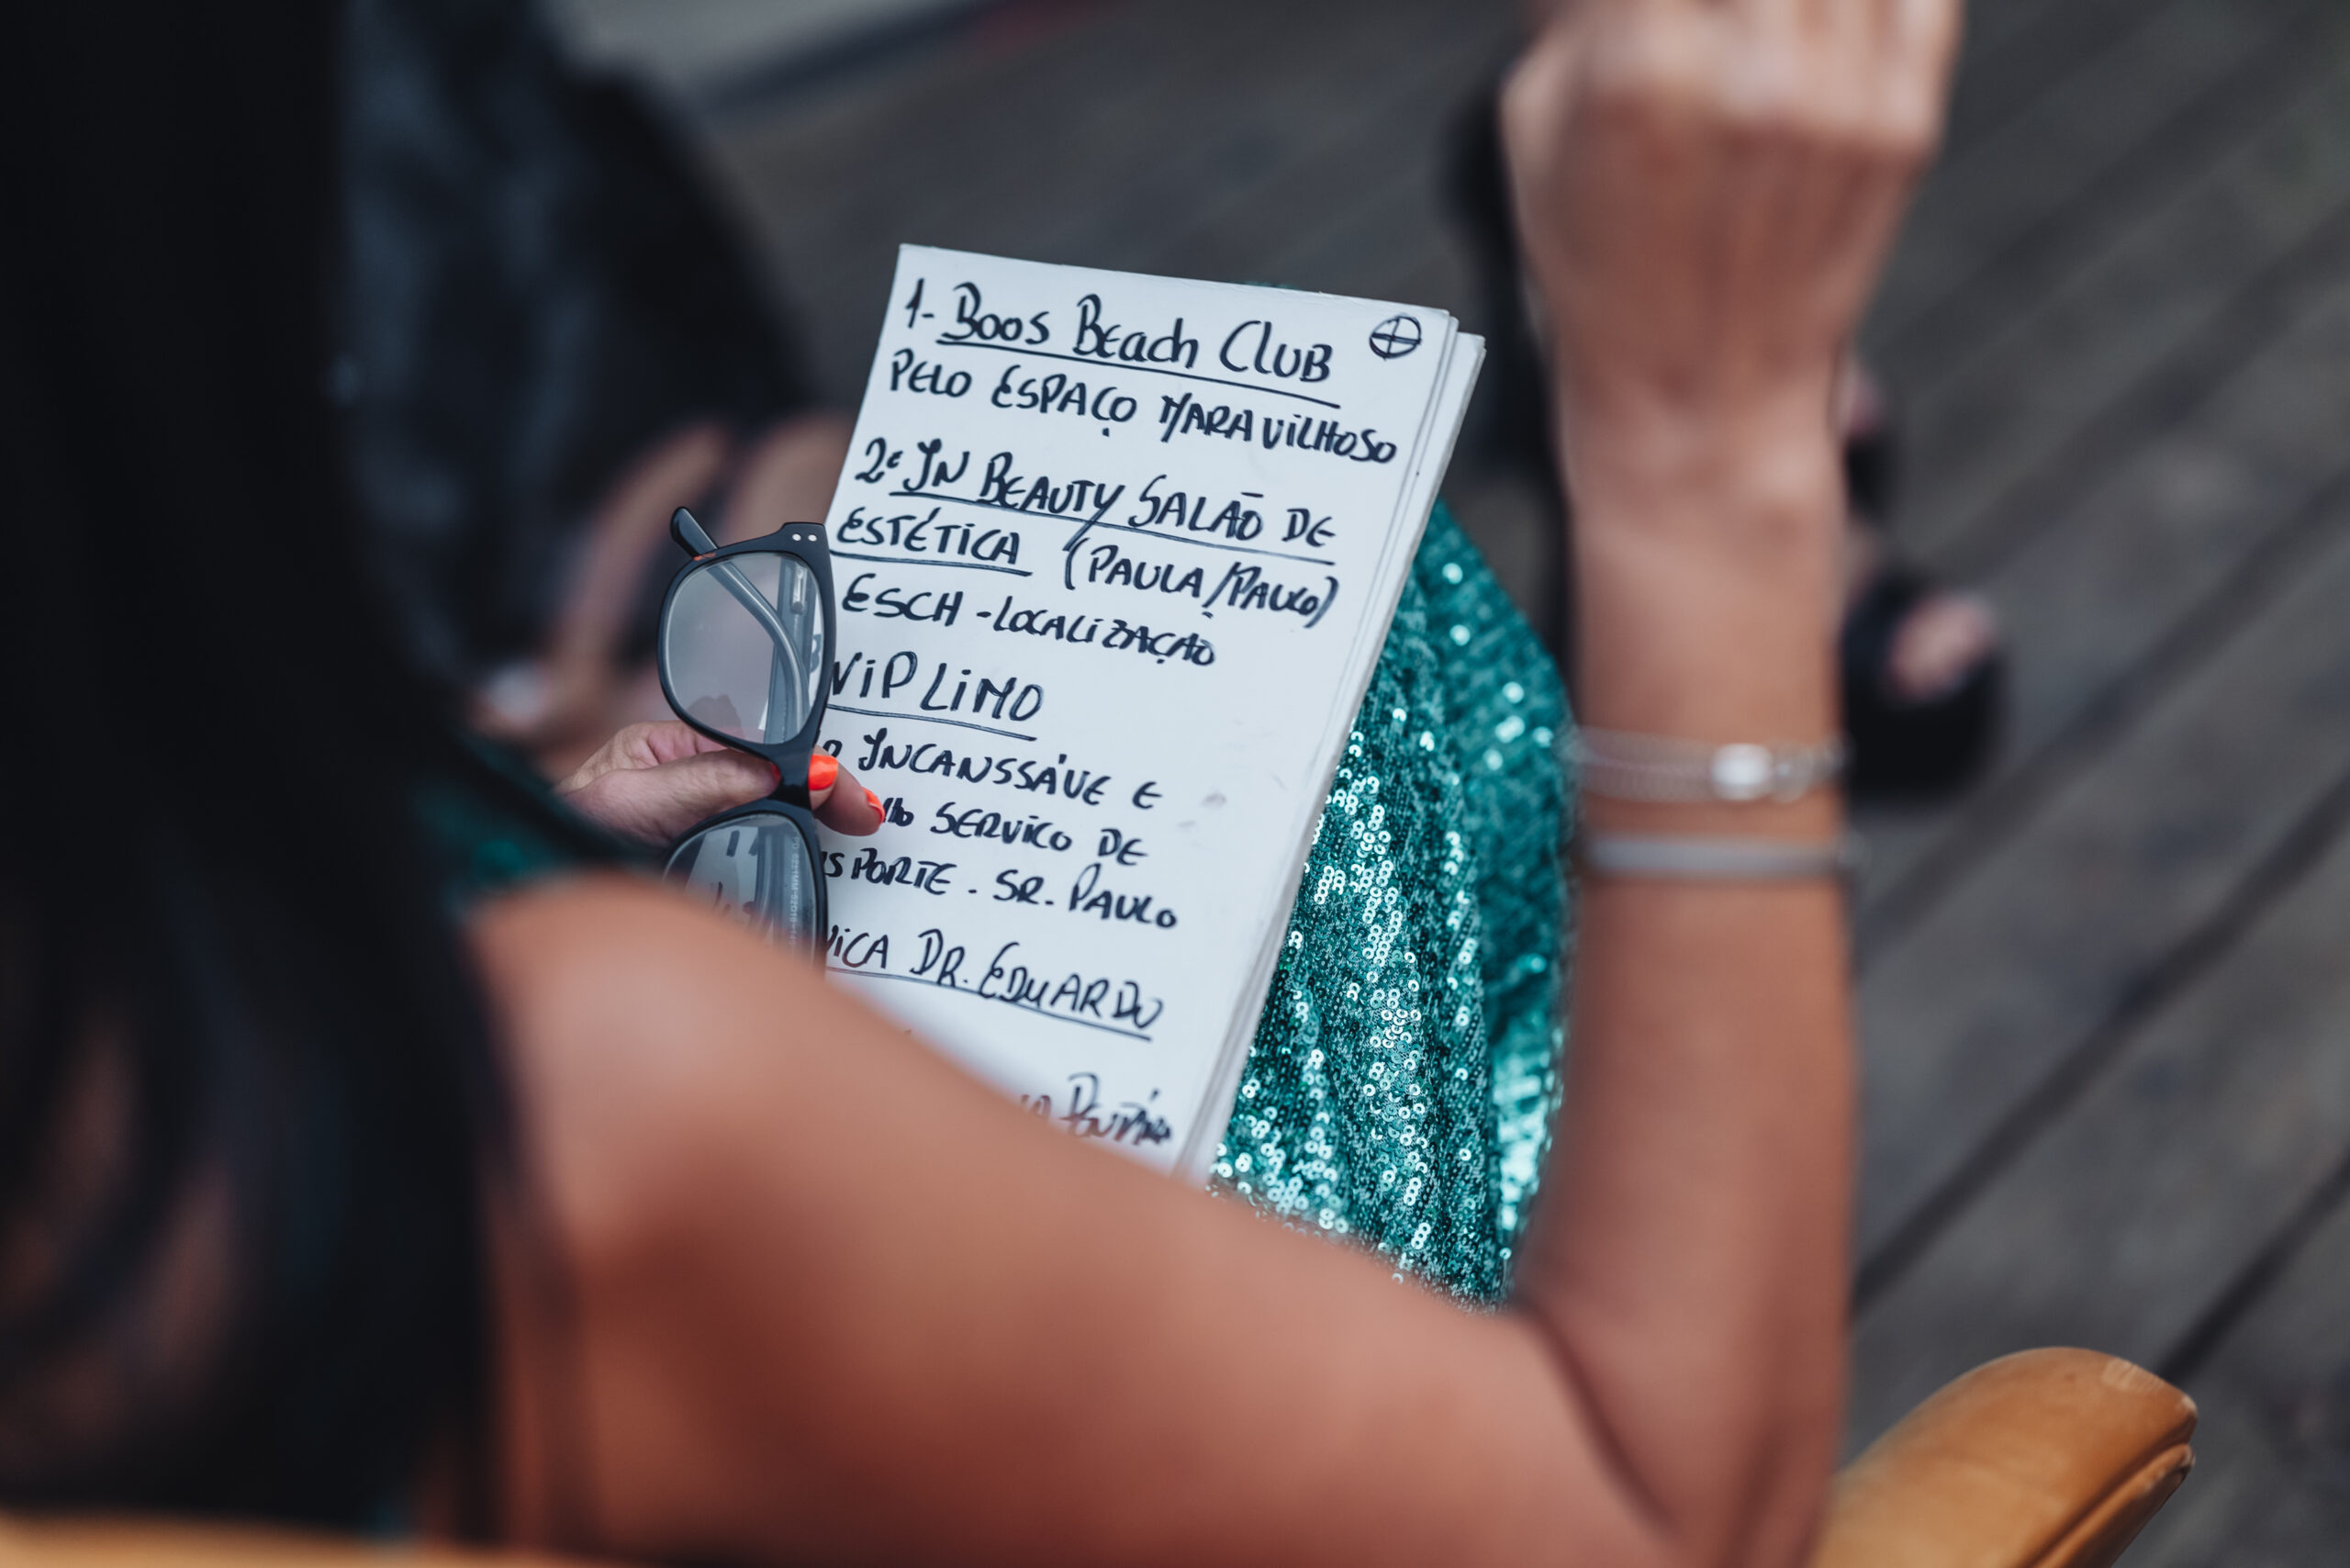 1- Boos Beach Club
PELO ESPAÇO MARAVILHOSO
2º IN BEAUTY SALÃO DE
ESTÉTICA (PAULA/PAULO)
ESCH - LOCALIZAÇÃO
VIP LIMO
INCANSSÁVE E
SERVICO DE
SPORTE. SR. PAULO
DR. EDUARDO